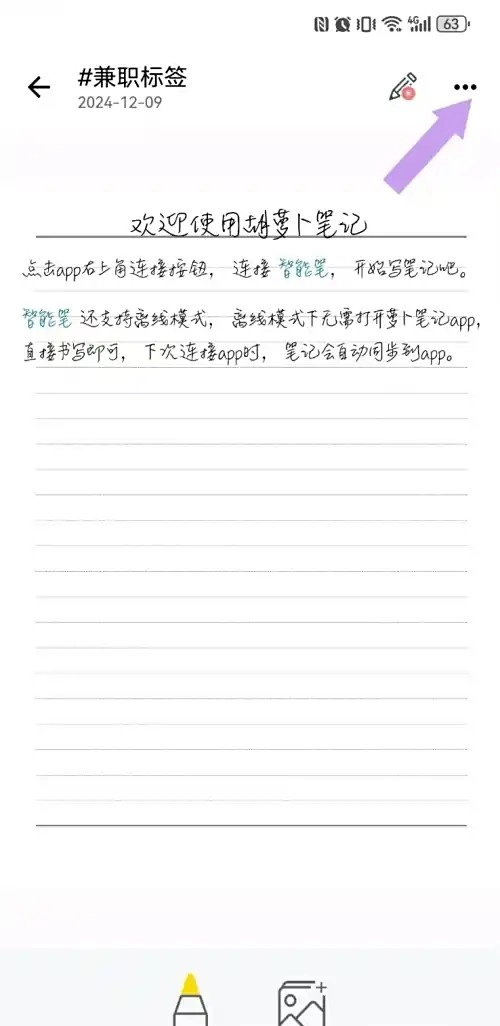 4G 63
#兼职标签
2024-12-09
欢迎使用胡萝卜笔记
点击app右上角连接按钮，连接智能笔，开始写笔记吧。
智能笔还支持离线模式，离线模式下无需打开萝卜笔记app，
直接书写即可，下次连接app时，笔记会自动同步到app。